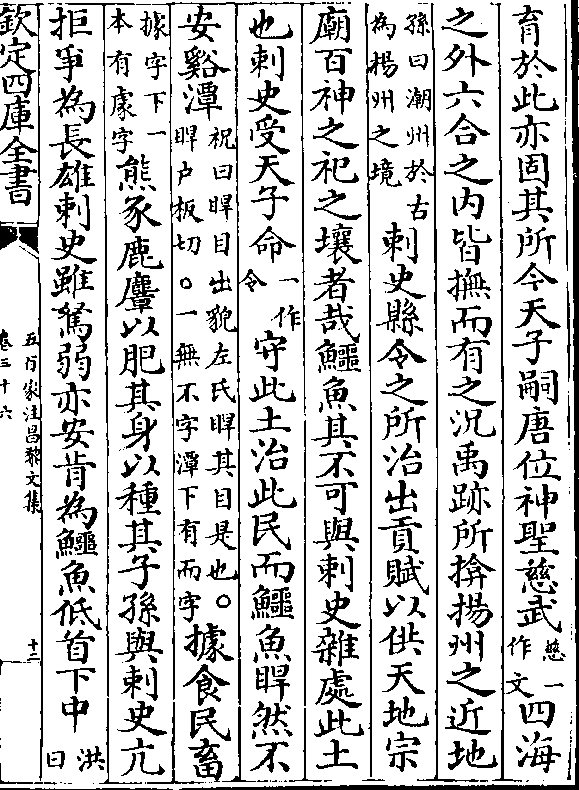 育於此亦固其所今天子嗣唐位神聖慈武慈一作文四海
之外六合之内皆撫而有之况禹跡所揜揚州之近地
孫曰潮州於古為揚州之境刺史縣令之所治出貢賦以供天地宗
廟百神之祀之壤者哉鱷魚其不可與刺史雜處此土
也刺史受天子命一作令守此土治此民而鱷魚睅然不
安谿潭祝曰睅目出貌左氏睅其目是也○睅户板切○一無不字潭下有而字據食民畜
據字下一本有處字熊豕鹿麞以肥其身以種其子孫與刺史亢
拒爭為長雄刺史雖駑弱亦安肯為鱷魚低首下中洪曰
欽定四庫全書
五百家注昌黎文集
卷三十六
十二